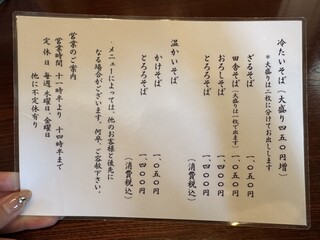 冷たいそば（大盛り四五〇円増）
＊大盛りは二枚に分けてお出しします
ざるそば 一、〇五〇円
田舎そば（大盛りは一枚で出ます） 一、〇五〇円
おろしそば 一、四〇〇円
とろろそば 一、四〇〇円
（消費税込）
温かいそば
かけそば 一、〇五〇円
とろろそば 一、四〇〇円
（消費税込）
メニューによっては、他のお客様と後先に
なる場合がございます。何卒、ご容赦下さい。
営業のご案内
営業時間 十一時半より 十四時半まで
定休日 毎週水曜日、金曜日
他に不定休有り